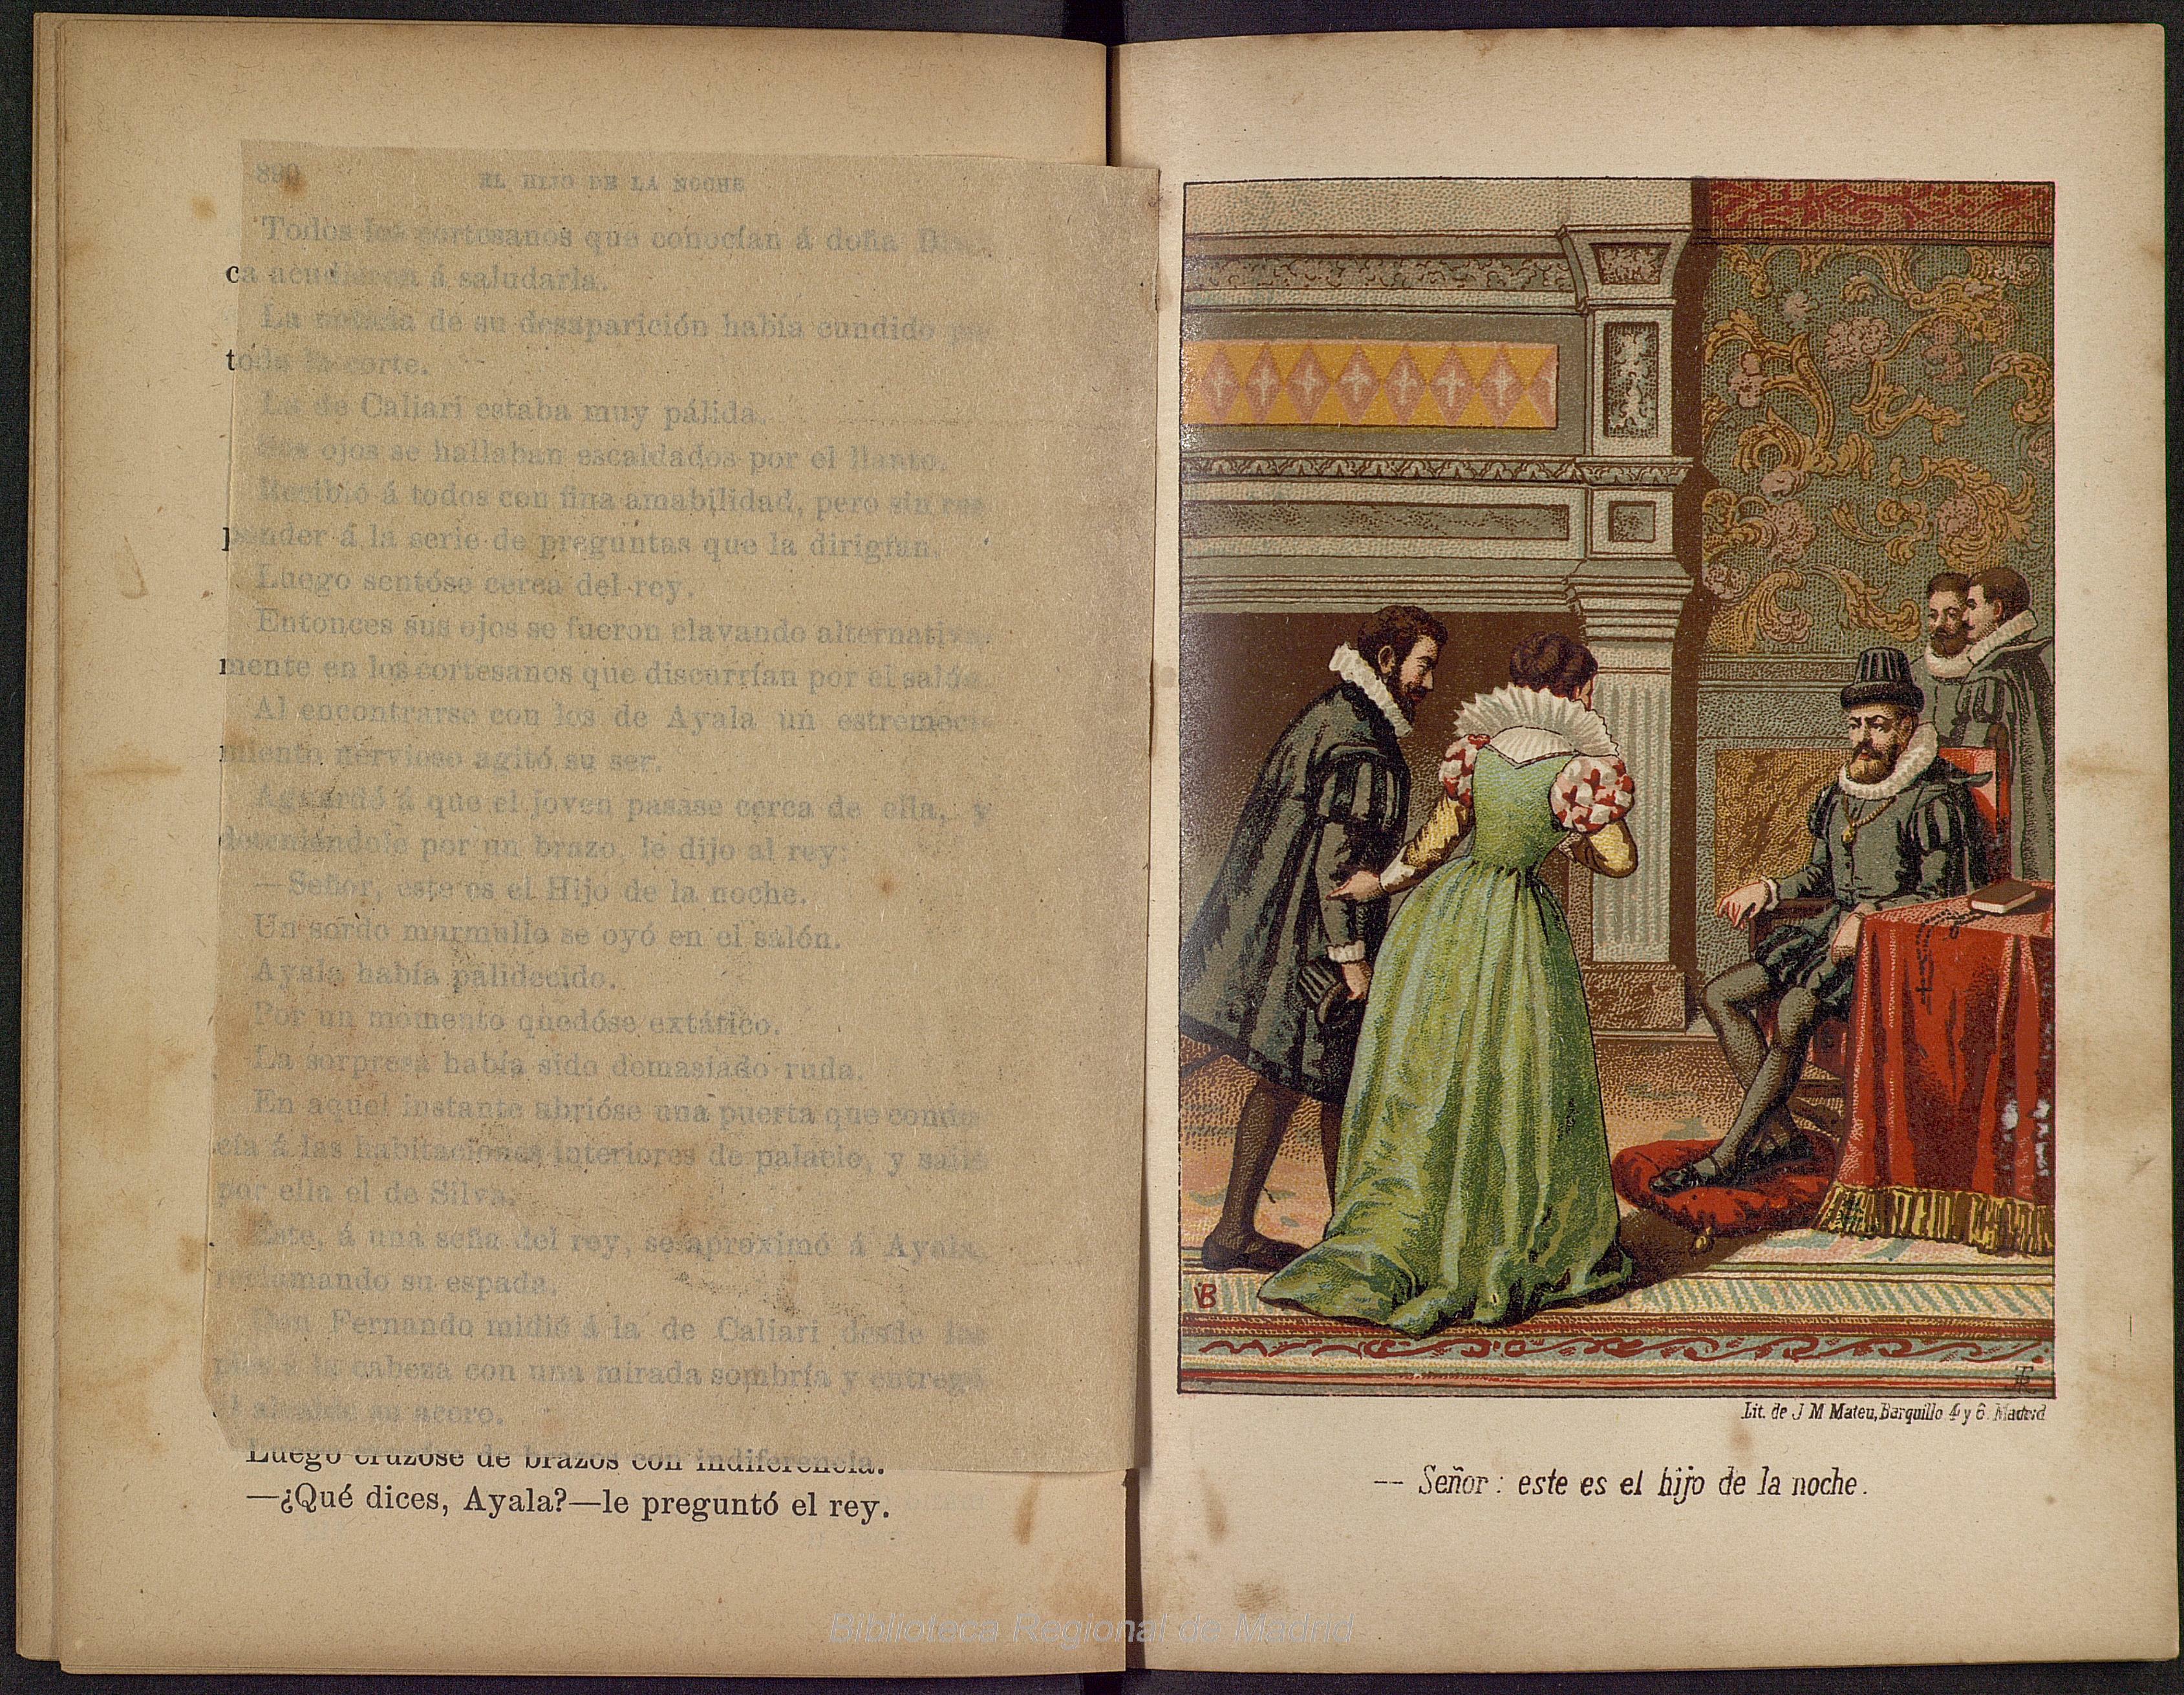 890 EL HIJO DE LA NOCHE
Todos los cortesanos que conocían á doña Blan-
ca acudieron á saludarla.
La noticia de su desaparición había cundido por
toda la corte.
La de Caliari estaba muy pálida.
Sus ojos se hallaban escaldados por el llanto.
Recibió á todos con fina amabilidad, pero sin res-
ponder á la serie de preguntas que la dirigían.
Luego sentóse cerca del rey.
Entonces sus ojos se fueron clavando alternativa-
mente en los cortesanos que discurrían por el salón.
Al encontrarse con los de Ayala un estremeci-
miento nervioso agitó su ser.
Aguardó á que el joven pasase cerca de ella, y
deteniéndole por un brazo, le dijo al rey:
—Señor, este es el Hijo de la noche.
Un sordo murmullo se oyó en el salón.
Ayala había palidecido.
Por un momento quedóse extático.
La sorpresa había sido demasiado ruda.
En aquel instante abrióse una puerta que condu-
cía á las habitaciones interiores de palacio, y salió
por ella el de Silva.
Este, á una seña del rey, se aproximó á Ayala,
reclamando su espada.
Don Fernando midió á la de Caliari desde los
pies á la cabeza con una mirada sombría y entregó
su acero.
Luego cruzóse de brazos con indiferencia.
—¿Qué dices, Ayala?—le preguntó el rey.
VB
Lit. de J M Mateu, Barquillo 4 y 6. Madrid
-- Señor: este es el hijo de la noche.
Biblioteca Regional de Madrid